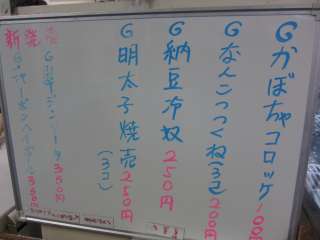 Gかぼちゃコロッケ100
Gなんこつつくね(3コ)200円
G納豆冷奴250円
G明太子焼売(3コ)250円
新発売
350円
350円